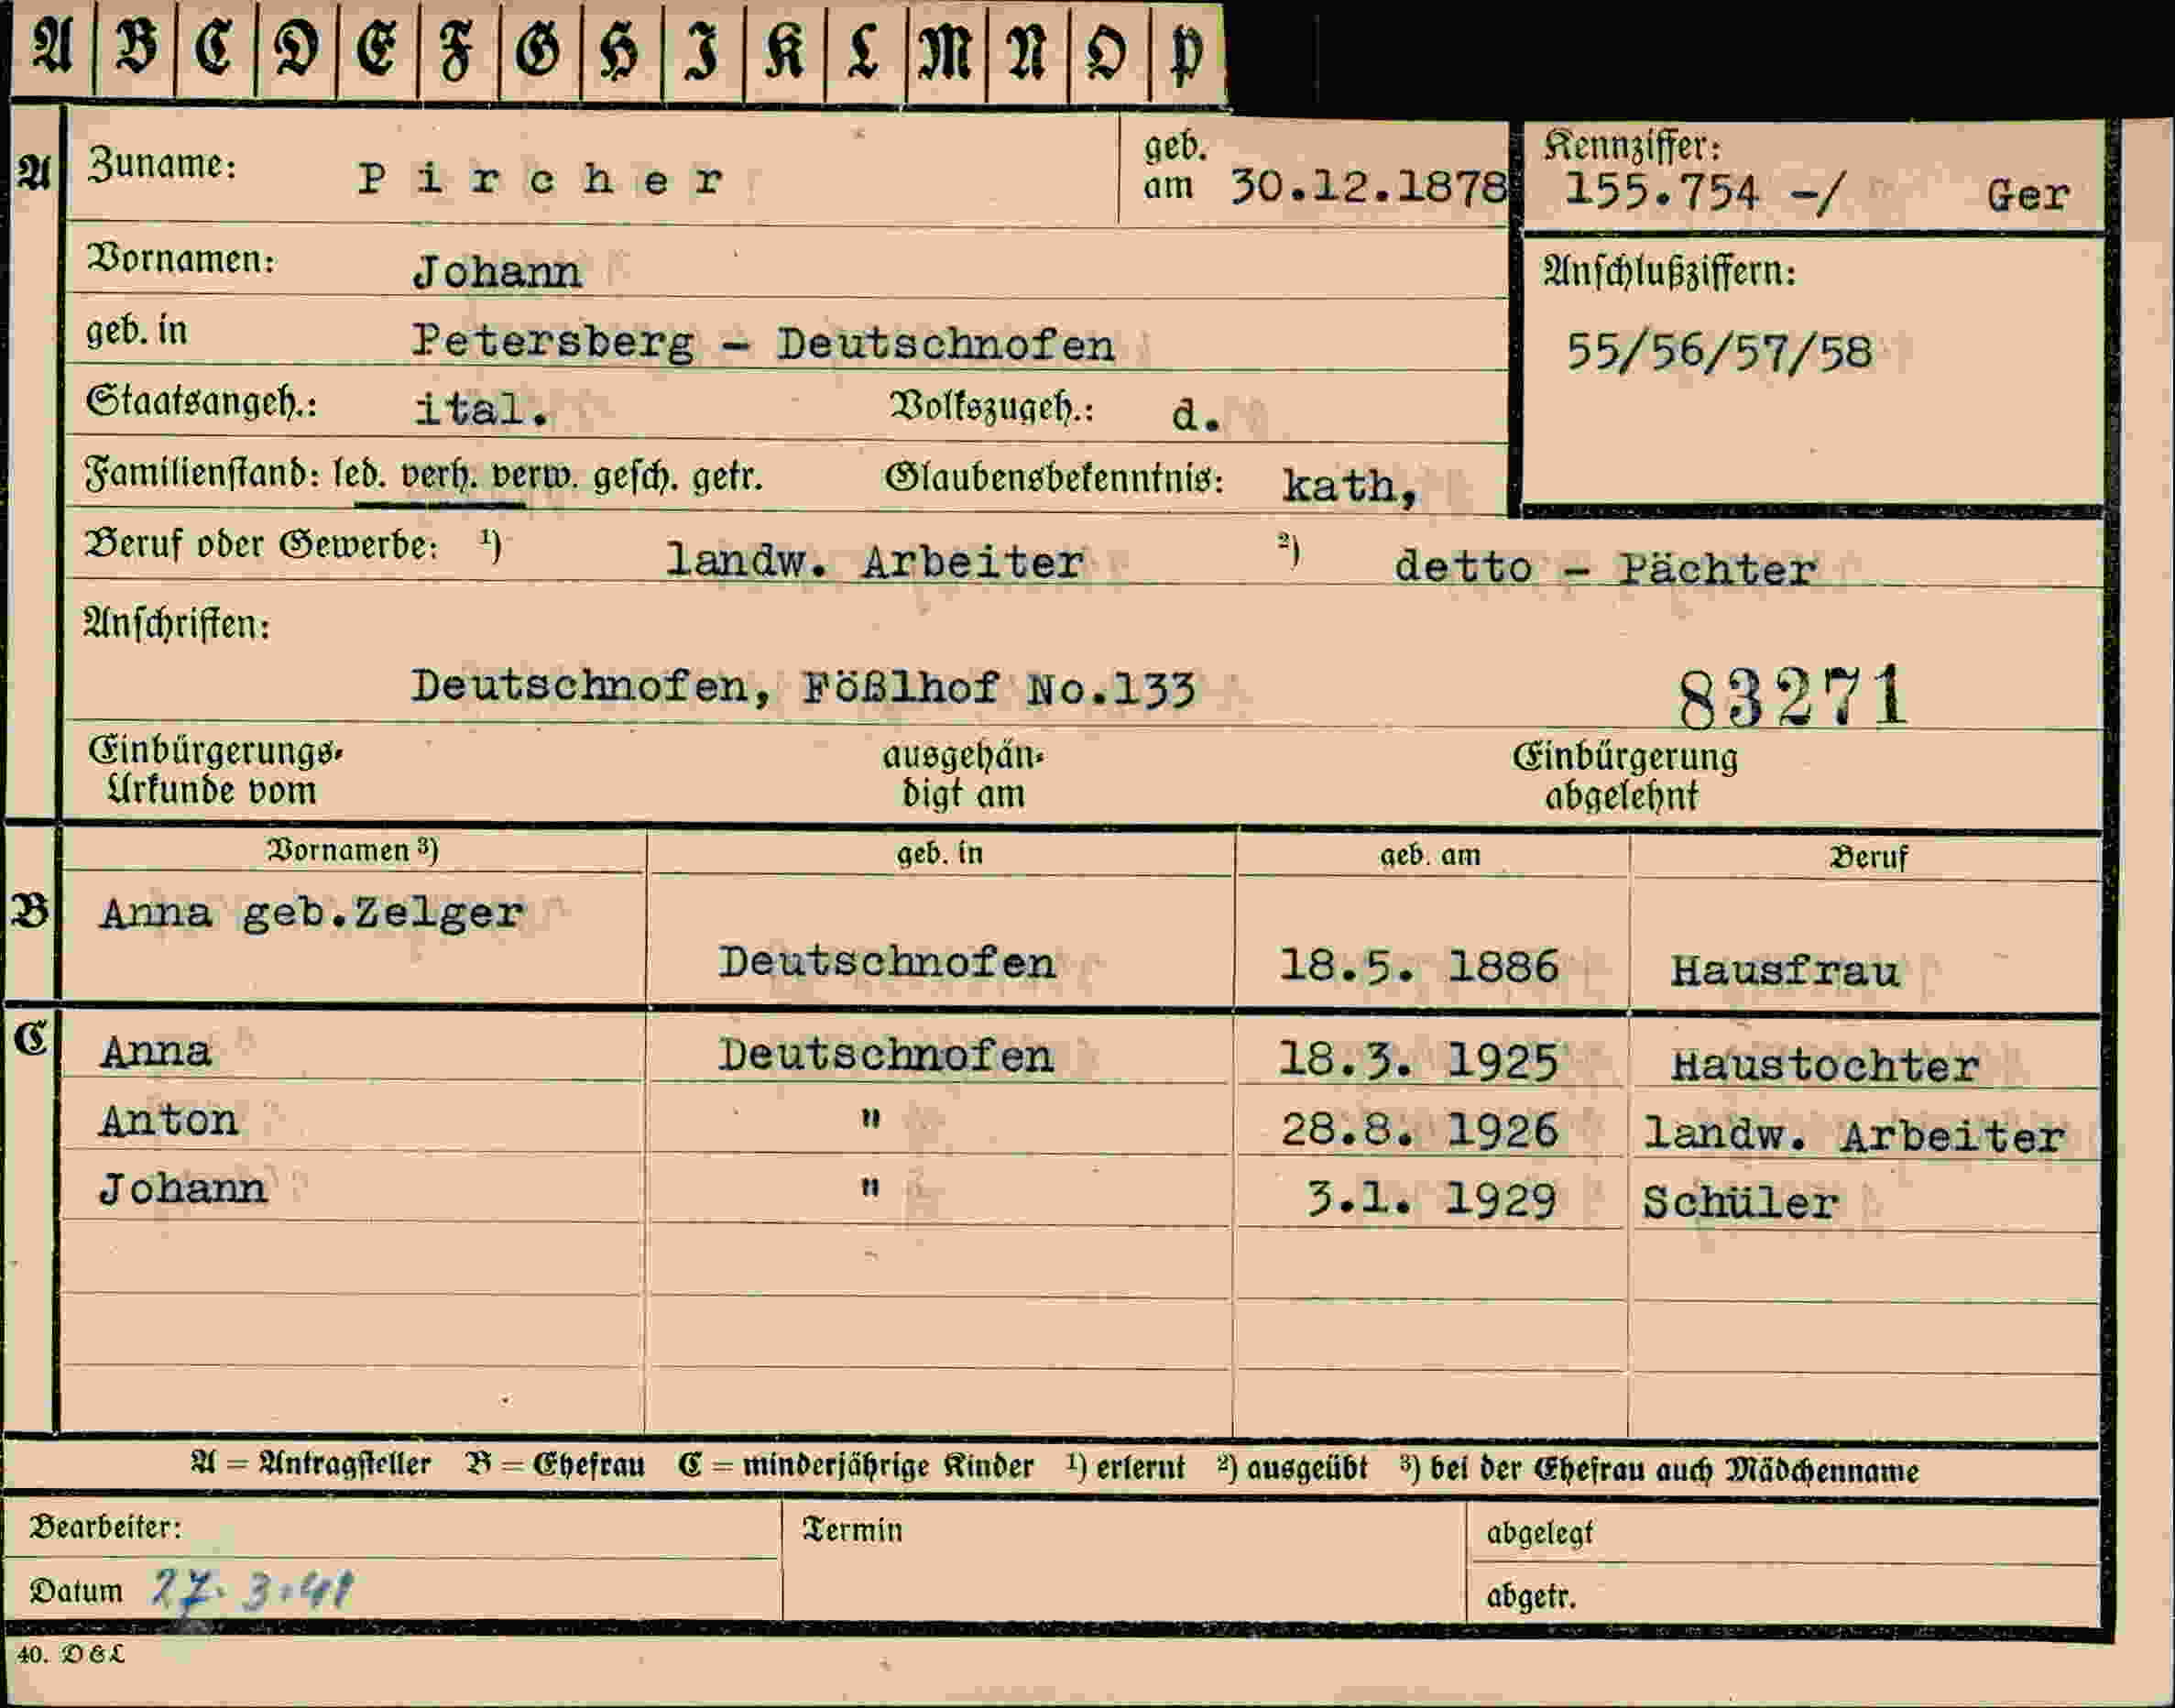 A B C D E F G H I K L M N O P
A Zuname: Pircher geb. am 30.12.1878 Kennziffer: 155.754 -/ Ger
Vornamen: Johann Anschlußziffern:
geb. in Petersberg - Deutschnofen 55/56/57/58
Staatsangeh.: ital. Volkszugeh.: d.
Familienstand: led. verh. verw. gesch. getr. Glaubensbekenntnis: kath,
Beruf oder Gewerbe: ¹) landw. Arbeiter ²) detto - Pächter
Anschriften:
Deutschnofen, Fößlhof No.133 83271
Einbürgerungs- ausgehän- Einbürgerung
Urkunde vom digt am abgelehnt
Vornamen ³) geb. in geb. am Beruf
B Anna geb.Zelger
Deutschnofen 18.5. 1886 Hausfrau
C Anna Deutschnofen 18.3. 1925 Haustochter
Anton " 28.8. 1926 landw. Arbeiter
Johann " 3.1. 1929 Schüler
A = Antragsteller B = Ehefrau C = minderjährige Kinder ¹) erlernt ²) ausgeübt ³) bei der Ehefrau auch Mädchenname
Bearbeiter: Termin abgelegt
Datum 27.3.41 abgetr.
40. D&L